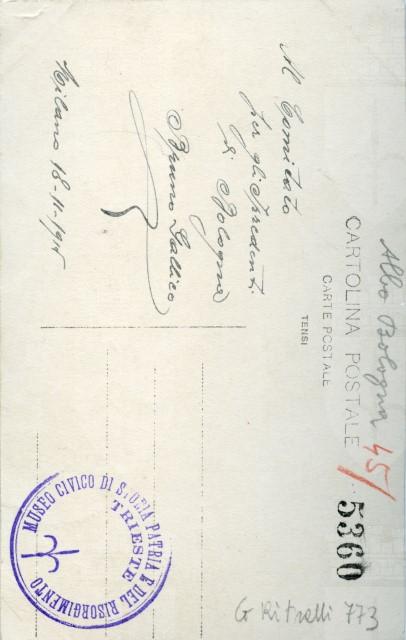 Al Comitato
per gli Irredenti
di Bologna
Bruno Gallico
Milano 16-11-915
Albo Bologna
45/
CARTOLINA POSTALE
CARTE POSTALE
TENSI
5360
MUSEO CIVICO DI STORIA PATRIA E DEL RISORGIMENTO
TRIESTE
G Ritratti 773